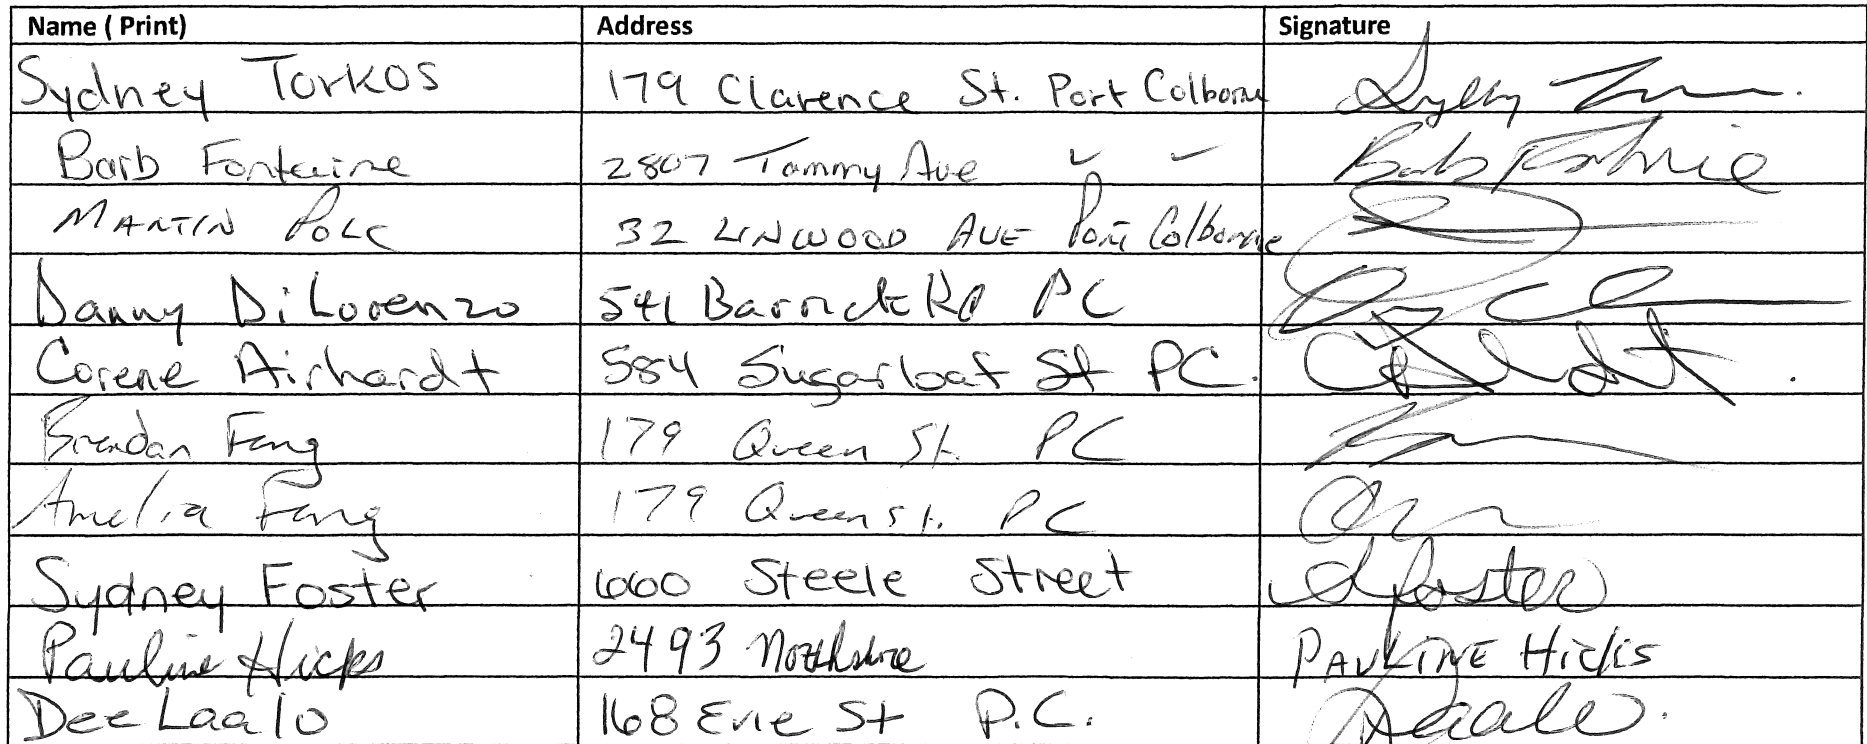 Name ( Print) Address Signature
Sydney Torkos 179 Clarence St. Port Colborne
Barb Fontaine 2807 Tammy Ave ✓ ✓
MARTIN POLC 32 LINWOOD AVE Port Colborne
Danny DiLorenzo 541 Barrick Rd PC
Corene Airhardt 584 Sugarloaf St PC.
Brendan Fang 179 Queen St. PC
Amelia Fang 179 Queen St. PC
Sydney Foster 660 Steele Street SFoster
Pauline Hicks 2493 Northshore PAULINE HICKS
Dee Laalo 168 Erie St P.C.